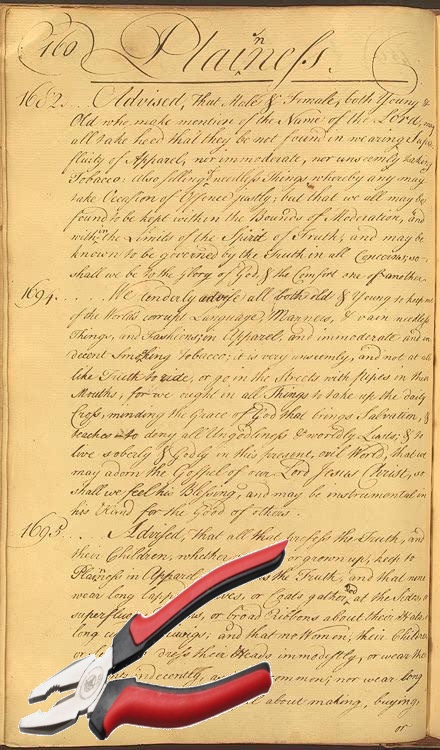 160 Plainness.
1682 . . Advised, That Male & Female, both Young &
Old who make mention of the Name of the Lord, may
all take heed that they be not found in wearing Supe
fluity of Apparel, nor immoderate, nor unseemly taking
Tobacco: Also selling needless Things whereby any may
take Occasion of Offence justly; but that we all may be
found to be kept within the Bounds of Moderation, and
within the Limits of the Spirit of Truth, and may be
known to be governed by the Truth in all Concerns, so
shall we be to the Glory of God, & the Comfort one of another.
1694. . . . . We tenderly advise all both old & Young to keep
of the World's corrupt Language, Manners, & vain needless
Things, and Fashions, in Apparel, and immoderate and in
decent Smoking Tobacco; it is very unseemly, and not at all
like Truth to ride, or go in the Streets with pipes in their
Mouths, for we ought in all Things to take up the daily
Cross, minding the Grace of God that brings Salvation, &
teaches to deny all Ungodliness & worldly Lusts, & to
live soberly & Godly in this present, evil World, that we
may adorn the Gospel of our Lord Jesus Christ, so
shall we feel his Blessing, and may be instrumental in
his Hand for the Good of others.
1695 . . Advised, that all that profess the Truth, and
their Children, whether or grown up, keep to
Plainness in Apparel the Truth, and that none
wear long lapp or Coats gather at the Sides, or
superfluous or broad Ribbons about their Hats
long and that no Women, their Children
or dress their Heads immodestly, or wear their
indecently, common; nor wear long
about making, buying,
or